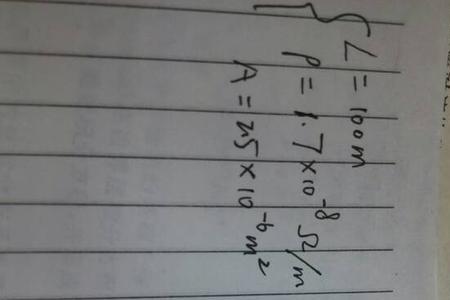 L = 100m
ρ = 1.7 × 10⁻⁸ Ω/m
A = 2.5 × 10⁻⁶ m²